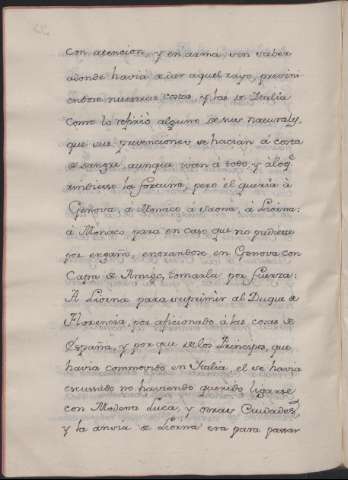 con atencion, y en arma, sin saber
adonde havia de dar aquel rayo, previni
endose nuestras costas, y las de Italia
como lo refirió alguno de sus naturales,
que sus prevenciones se hacian á costa
de sangre, aunque ivan á robo, y á loq.
rindiese la fortuna, pero él queria á
Genova, á Monaco, á Saona, á Liorna:
á Monaco para en caso que no pudiese
por engaño, entrandose en Genova con
Capa de Amigo, tomarla por fuerza:
A Liorna para suprimir al Duque de
Florencia, por aficionado á las cosas de
España, y por que de los Principes, que
havia commovido en Italia, el se havia
escusado no haviendo querido ligarse
con Modena Luca, y otras Ciudades,
y la de Liorna era para passar